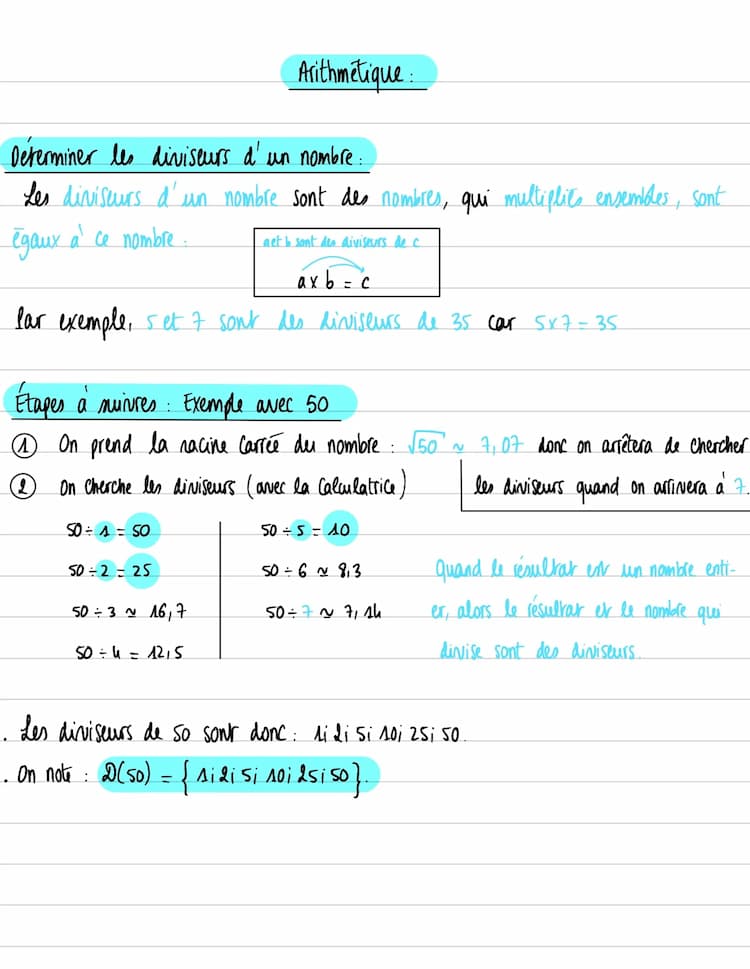 Arithmétique :
Déterminer les diviseurs d'un nombre :
Les diviseurs d'un nombre sont des nombres, qui multipliés ensembles, sont
égaux à ce nombre :
a et b sont des diviseurs de c
a × b = c
Par exemple, 5 et 7 sont des diviseurs de 35 car 5 × 7 = 35
Étapes à suivres : Exemple avec 50
① On prend la racine carrée du nombre : √50 ≈ 7,07 donc on arrêtera de chercher
les diviseurs quand on arrivera à 7.
② On cherche les diviseurs (avec la calculatrice)
50 ÷ 1 = 50
50 ÷ 2 = 25
50 ÷ 3 ≈ 16,7
50 ÷ 4 = 12,5
50 ÷ 5 = 10
50 ÷ 6 ≈ 8,3
50 ÷ 7 ≈ 7,14
Quand le résultat est un nombre enti-
er, alors le résultat et le nombre qui
divise sont des diviseurs.
. Les diviseurs de 50 sont donc : 1; 2; 5; 10; 25; 50.
. On note : D(50) = {1; 2; 5; 10; 25; 50}.